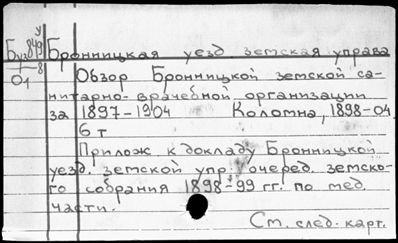 Бронницкая уезд земская управа
Обзор Бронницкой земской са-
нитарно-врачебной организации
за 1897-1904 Коломна, 1898-04
6 т
Прилож к докладу Бронницкой
уезд. земской упр. очеред. земско-
го собрания 1898-99 гг. по мед.
части.
См. след. карт.